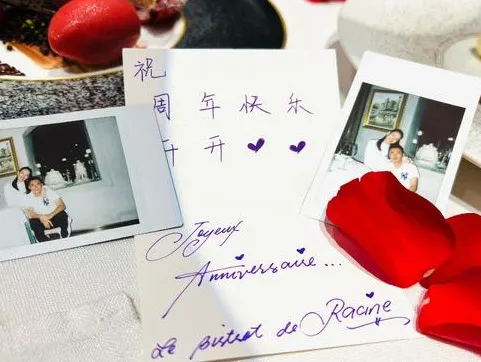 祝
周年快乐
开开♥♥
Joyeux
Anniversaire...
Le bistrot de Racine